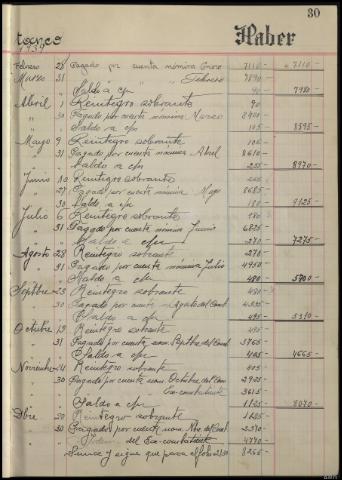 30
Haber
1939
Febrero 28 Pagado por cuenta nómina Enero 7110 - " 7110 -
Marzo 31 " " " " Febrero 7890 -
" " Saldo a c/n 90 - 7980 -
Abril 1 Reintegro sobrante 90 -
" 30 Pagado por cuenta nómina Marzo
" " Saldo a c/n 105 - 8595 -
Mayo 9 Reintegro sobrante 105 -
" 31 Pagado por cuenta nómina Abril 8610 -
" " Saldo a c/n 255 - 8970 -
Junio 10 Reintegro sobrante
" 27 Pagado por cuenta nómina Mayo 8685 -
" 30 Saldo a c/n 180 - 9125 -
Julio 6 Reintegro sobrante 180
" 31 Pagado por cuenta nómina Junio 6825 -
" " Saldo a c/n 270 - 7275 -
Agosto 28 Reintegro sobrante 270 -
" 31 Pagado por cuenta nómina Julio 4950 -
" " Saldo a c/n 480 5700 -
Septbre 25 Reintegro sobrante 480 -
" 30 Pagado por cuenta Agosto del Comb
" " Saldo a c/n 495 - 5310 -
Octubre 19 Reintegro sobrante 495 -
" 31 Pagado por cuenta nom Septbre del Comb 3765 -
" " Saldo a c/n 405 - 4665 -
Noviembre 24 Reintegro sobrante 405 -
" 30 Pagado por cuenta nom Octubre del Com 2925 -
" " " " Ex-combatiente 3615 -
" " Saldo a c/n 1125 - 8070 -
Dbre 20 Reintegro sobrante 1125 -
" 30 Pagado por cuenta nom Nbre del Comb 2370 -
" " Idem del Ex-combatiente 4770 -
Suma y sigue que pasa al folio 8265 -